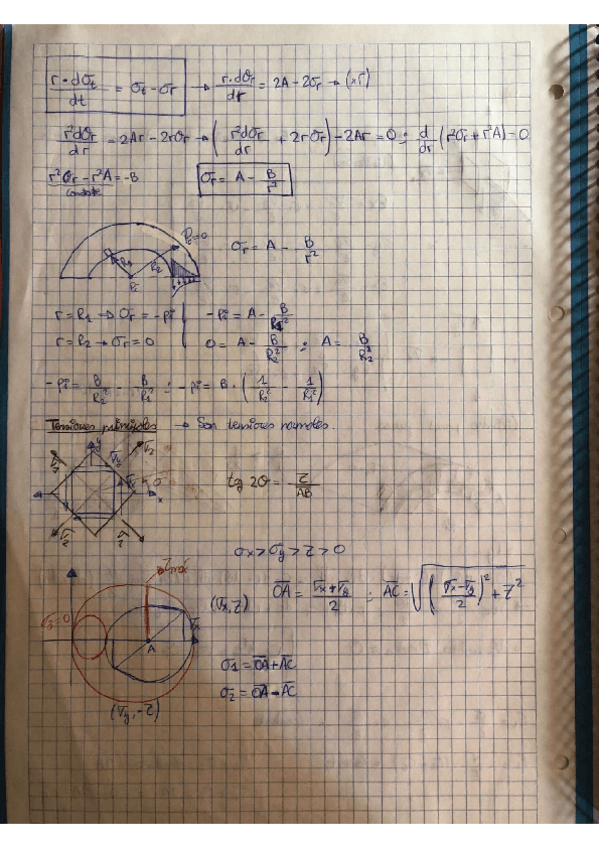 r·dσt/dt = σt - σr → r·dσr/dr = 2A - 2σr → (×r)
r²dσr/dr = 2Ar - 2rσr → (r²dσr/dr + 2rσr) - 2Ar = 0 ; d/dr (r²σr + r²A) = 0
r²σr - r²A = -B
σr = A - B/r²
Pe = 0
R1
R2
Pi
σr = A - B/r²
r = R1 → σr = -pi
-pi = A - B/R1²
r = R2 → σr = 0
0 = A - B/R2² ; A = B/R2²
-pi = B/R2² - B/R1² ; -pi = B · (1/R2² - 1/R1²)
Tensiones principales → Son tensiones normales.
y
x
tg 2θ = τ/AB
σx > σy > τ > 0
τmáx
σ3=0
A
(σx, τ)
OA = (σx+σy)/2 ; AC = √((σx-σy)/2)² + τ²
σ1 = OA + AC
σ2 = OA - AC
(σy, -τ)